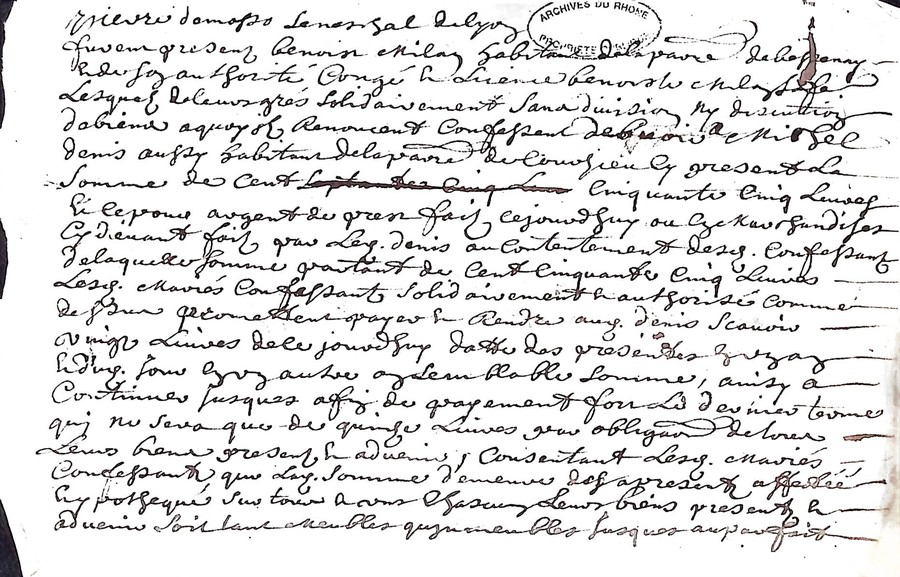 pierre damasso seneschal de lyon
ARCHIVES DU RHONE
PROPRIETE
furent presentz benoist Milan habitant de la parre de bessenay
& de soy authorité Congé & Licence benoiste
Lesquelz de leurs grés solidairement sans division ny discution
de biens a quoy ilz Renoncent Confessent debvoir a Michel
denis aussy habitant de la parre de Courzieu Cy present La
somme de Cent septante Cinq Livres Cinquante Cinq Livres
argent de prest fait cejourdhuy ou en Marchandises
Cy devant fait par Led. denis au Contentement desd. Confessant
de laquelle somme partant de Cent Cinquante Cinq Livres
Lesd. Mariés Confessant solidairement & authorisé Comme
dessus promettent payer & Rendre aud. denis Scavoir
vingt Livres de ce jourdhuy datte des presentes en
& dud. jour en un autre semblable somme, ainsy a
Continuer jusques a fin de payement fors Le dernier terme
qui ne sera que de quinze Livres par obligaon de tous
Leurs biens presentz & advenir, Consentant Lesd. Mariés
Confessantz que Lad. somme demeure des a present affectée
hypothequé sur tous & uns Chascung Leurs biens presentz &
advenir soit tant Meubles qu'ymmeubles jusques au parfait